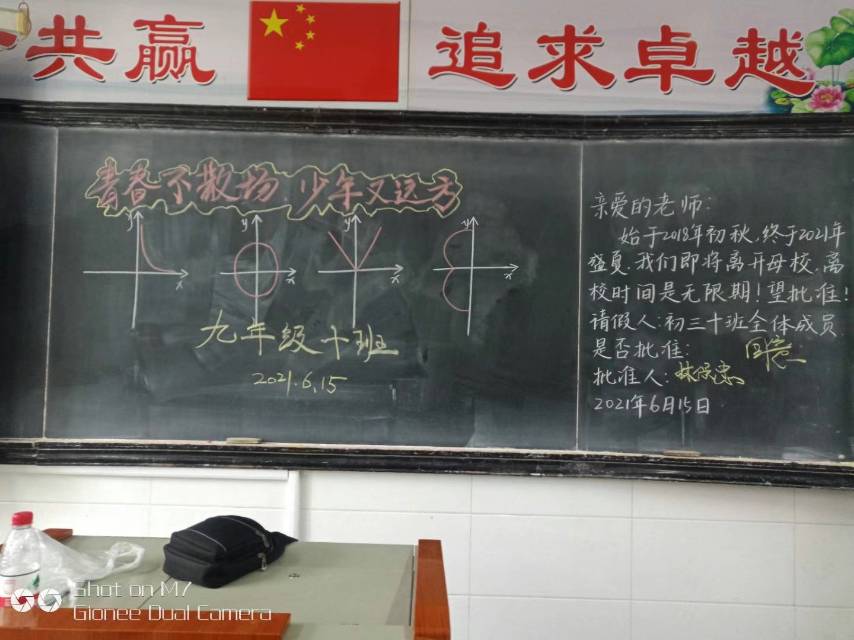 共赢
追求卓越
青春不散场 少年又远方
y
x
y
x
y
x
y
x
九年级十班
2021.6.15
亲爱的老师:
始于2018年初秋,终于2021年
盛夏.我们即将离开母校.离
校时间是无限期!望批准!
请假人:初三十班全体成员
是否批准: 同意
批准人:
2021年6月15日
Shot on M7
Gionee Dual Camera